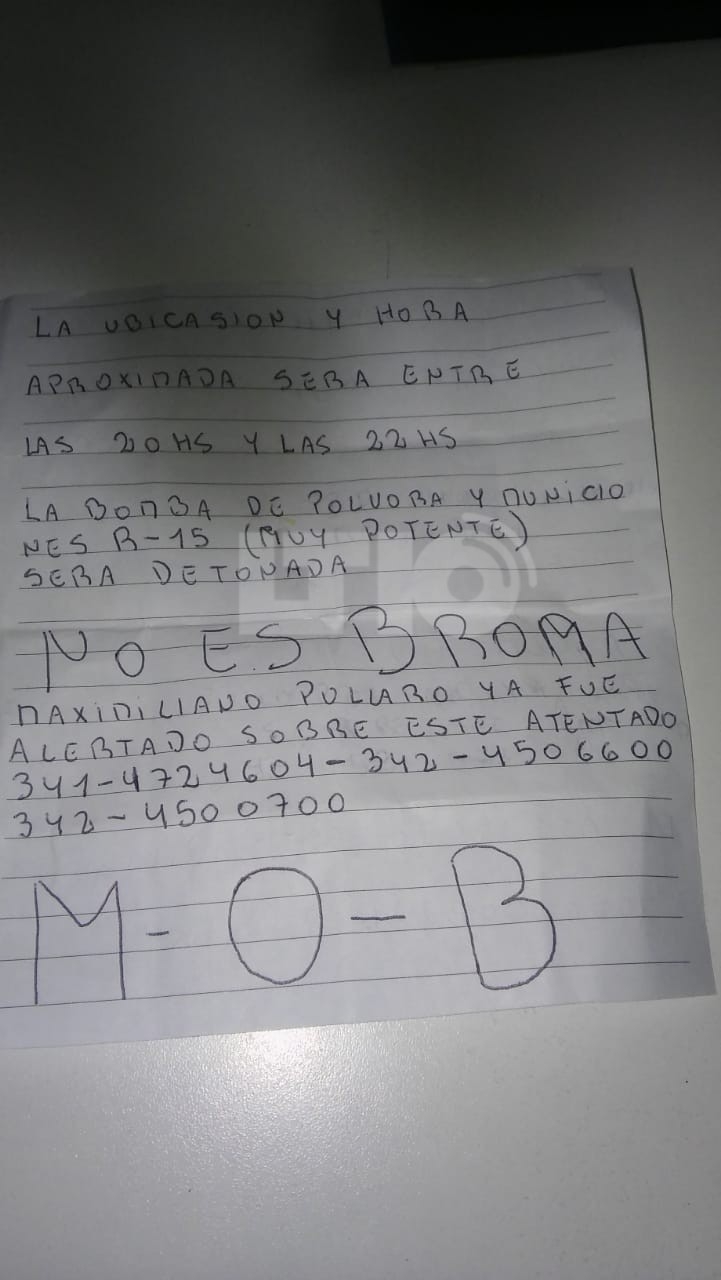 LA UBICASION Y HORA
APROXIMADA SERA ENTRE
LAS 20HS Y LAS 22HS
LA BOMBA DE POLVORA Y MUNICIO
NES R-15 (MUY POTENTE)
SERA DETONADA
LT10
NO ES BROMA
MAXIMILIANO PULLARO YA FUE
ALERTADO SOBRE ESTE ATENTADO
341-4724604-342-4506600
342-4500700
M-O-B